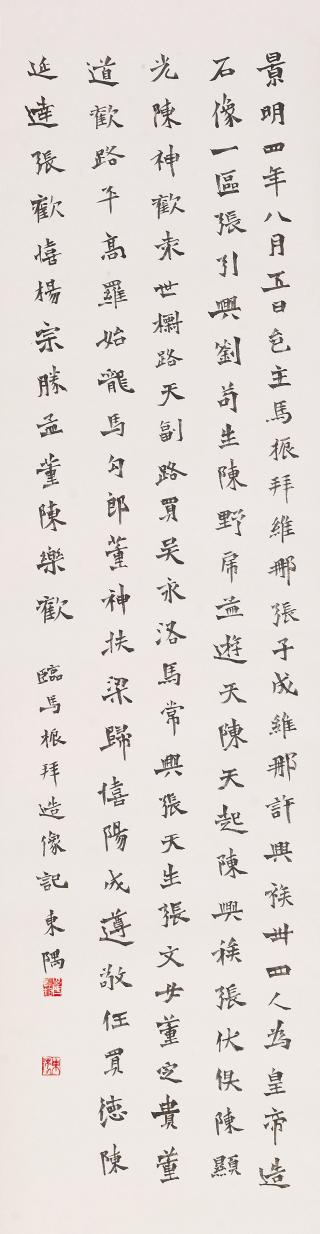 景明四年八月五日邑主馬振拜維那張子成維那許興族卅四人為皇帝造
石像一區張引興劉苟生陳野虎益遊天陳天起陳興族張伏俱陳顯
光陳神歡末世欄路天副路買吴永洛馬常興張天生張文安董定貴董
道歡路平高羅始龍馬勾郎董神扶梁歸憘陽成遵敬任買德陳
延達張歡憘楊宗勝孟董陳樂歡 臨馬振拜造像記 東隅